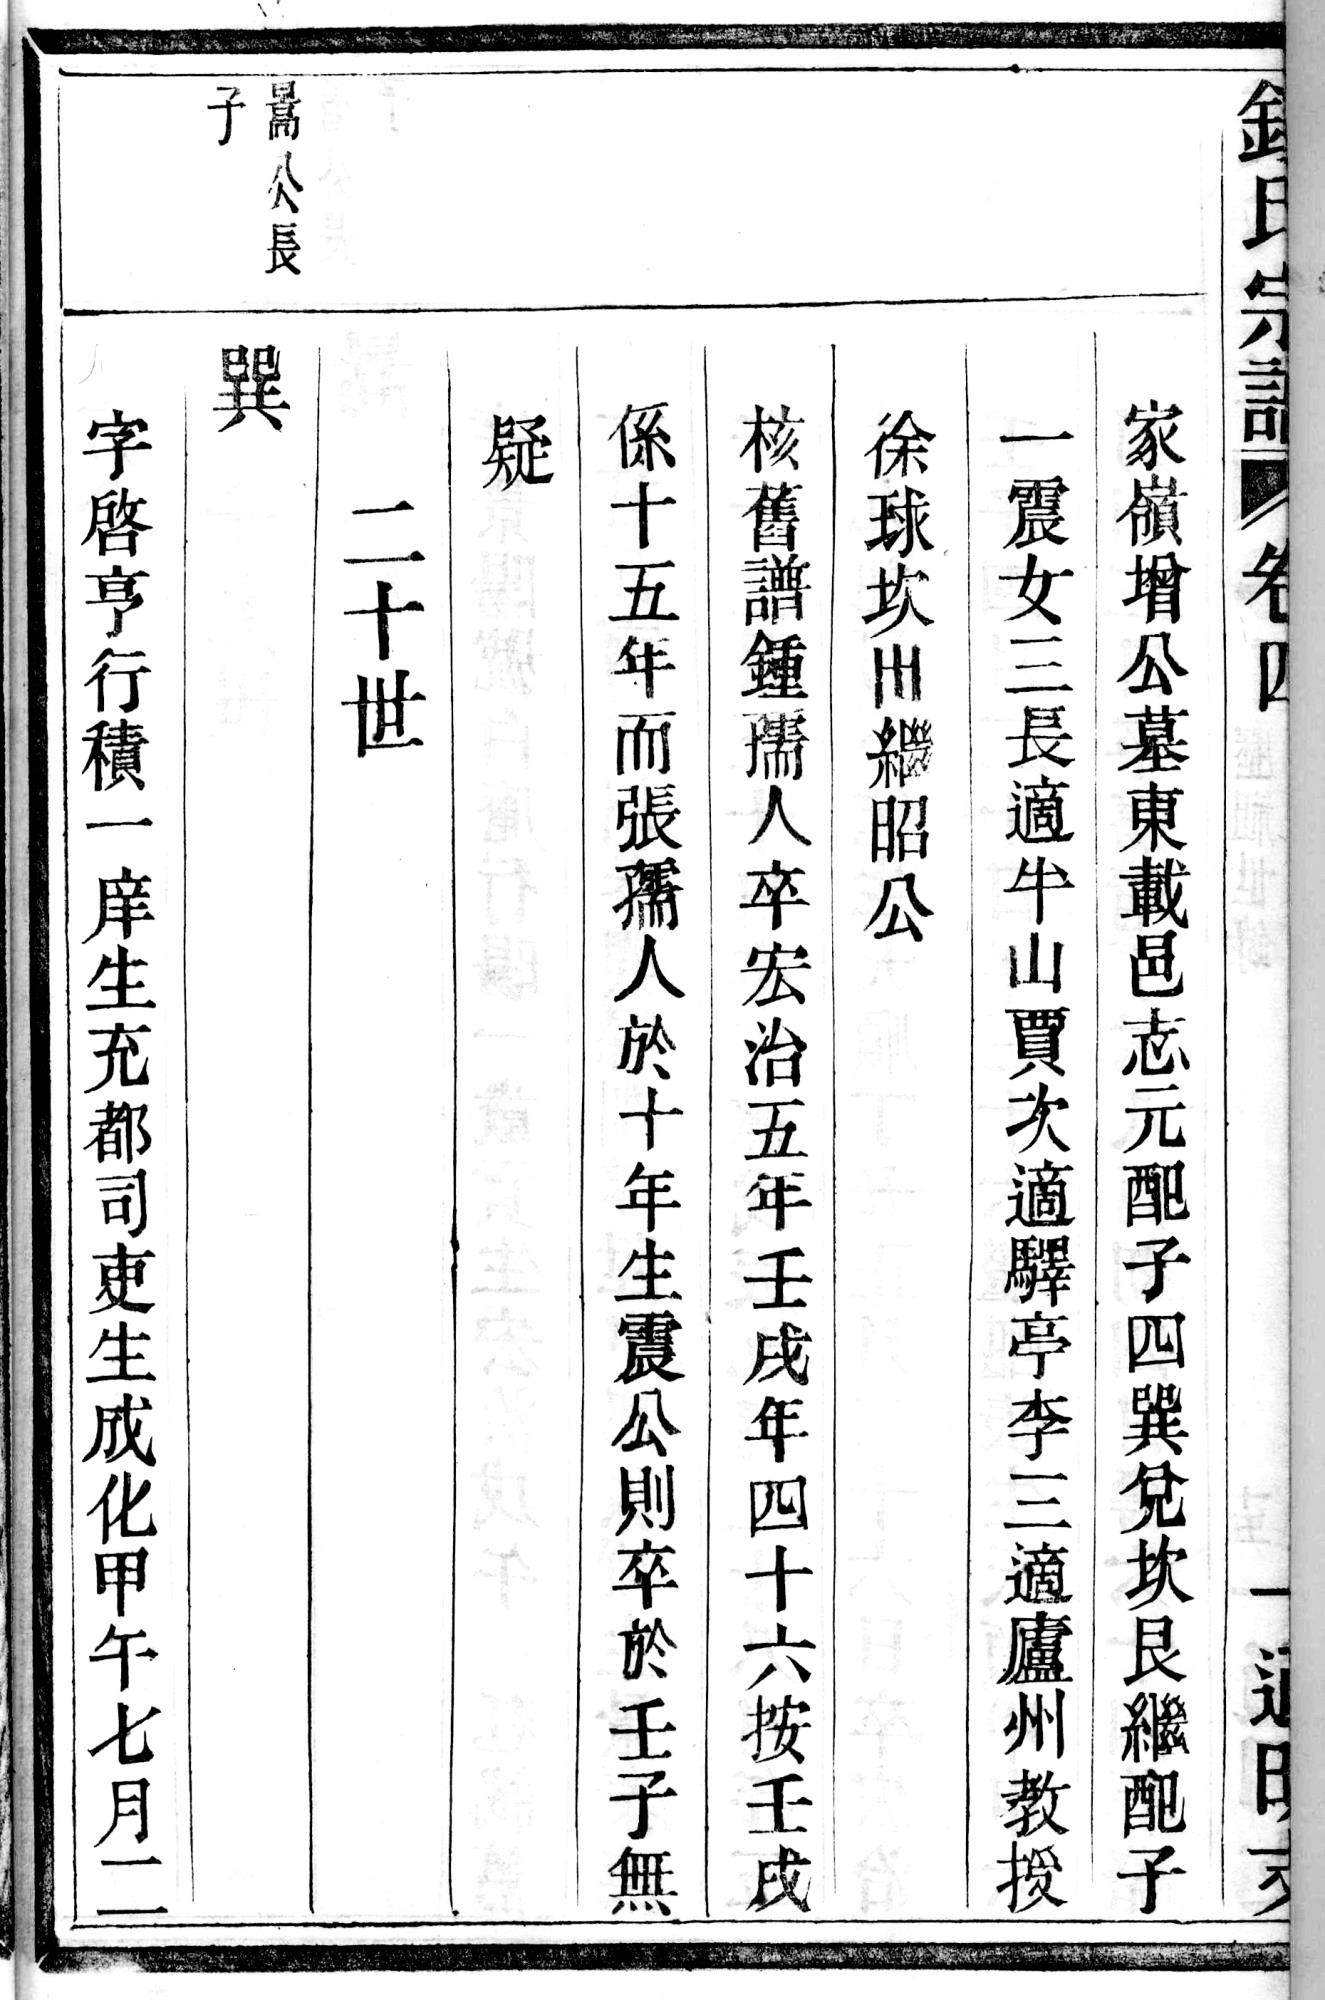 鍾氏宗譜 卷四 一 通明支
家嶺增公墓東載邑志元配子四巽兌坎艮繼配子
一震女三長適牛山賈次適驛亭李三適廬州教授
徐球坎出繼昭公
核舊譜鍾孺人卒宏治五年壬戌年四十六按壬戌
係十五年而張孺人於十年生震公則卒於壬子無
疑
二十世
暠公長
子
巽
字啓亨行積一庠生充都司吏生成化甲午七月二